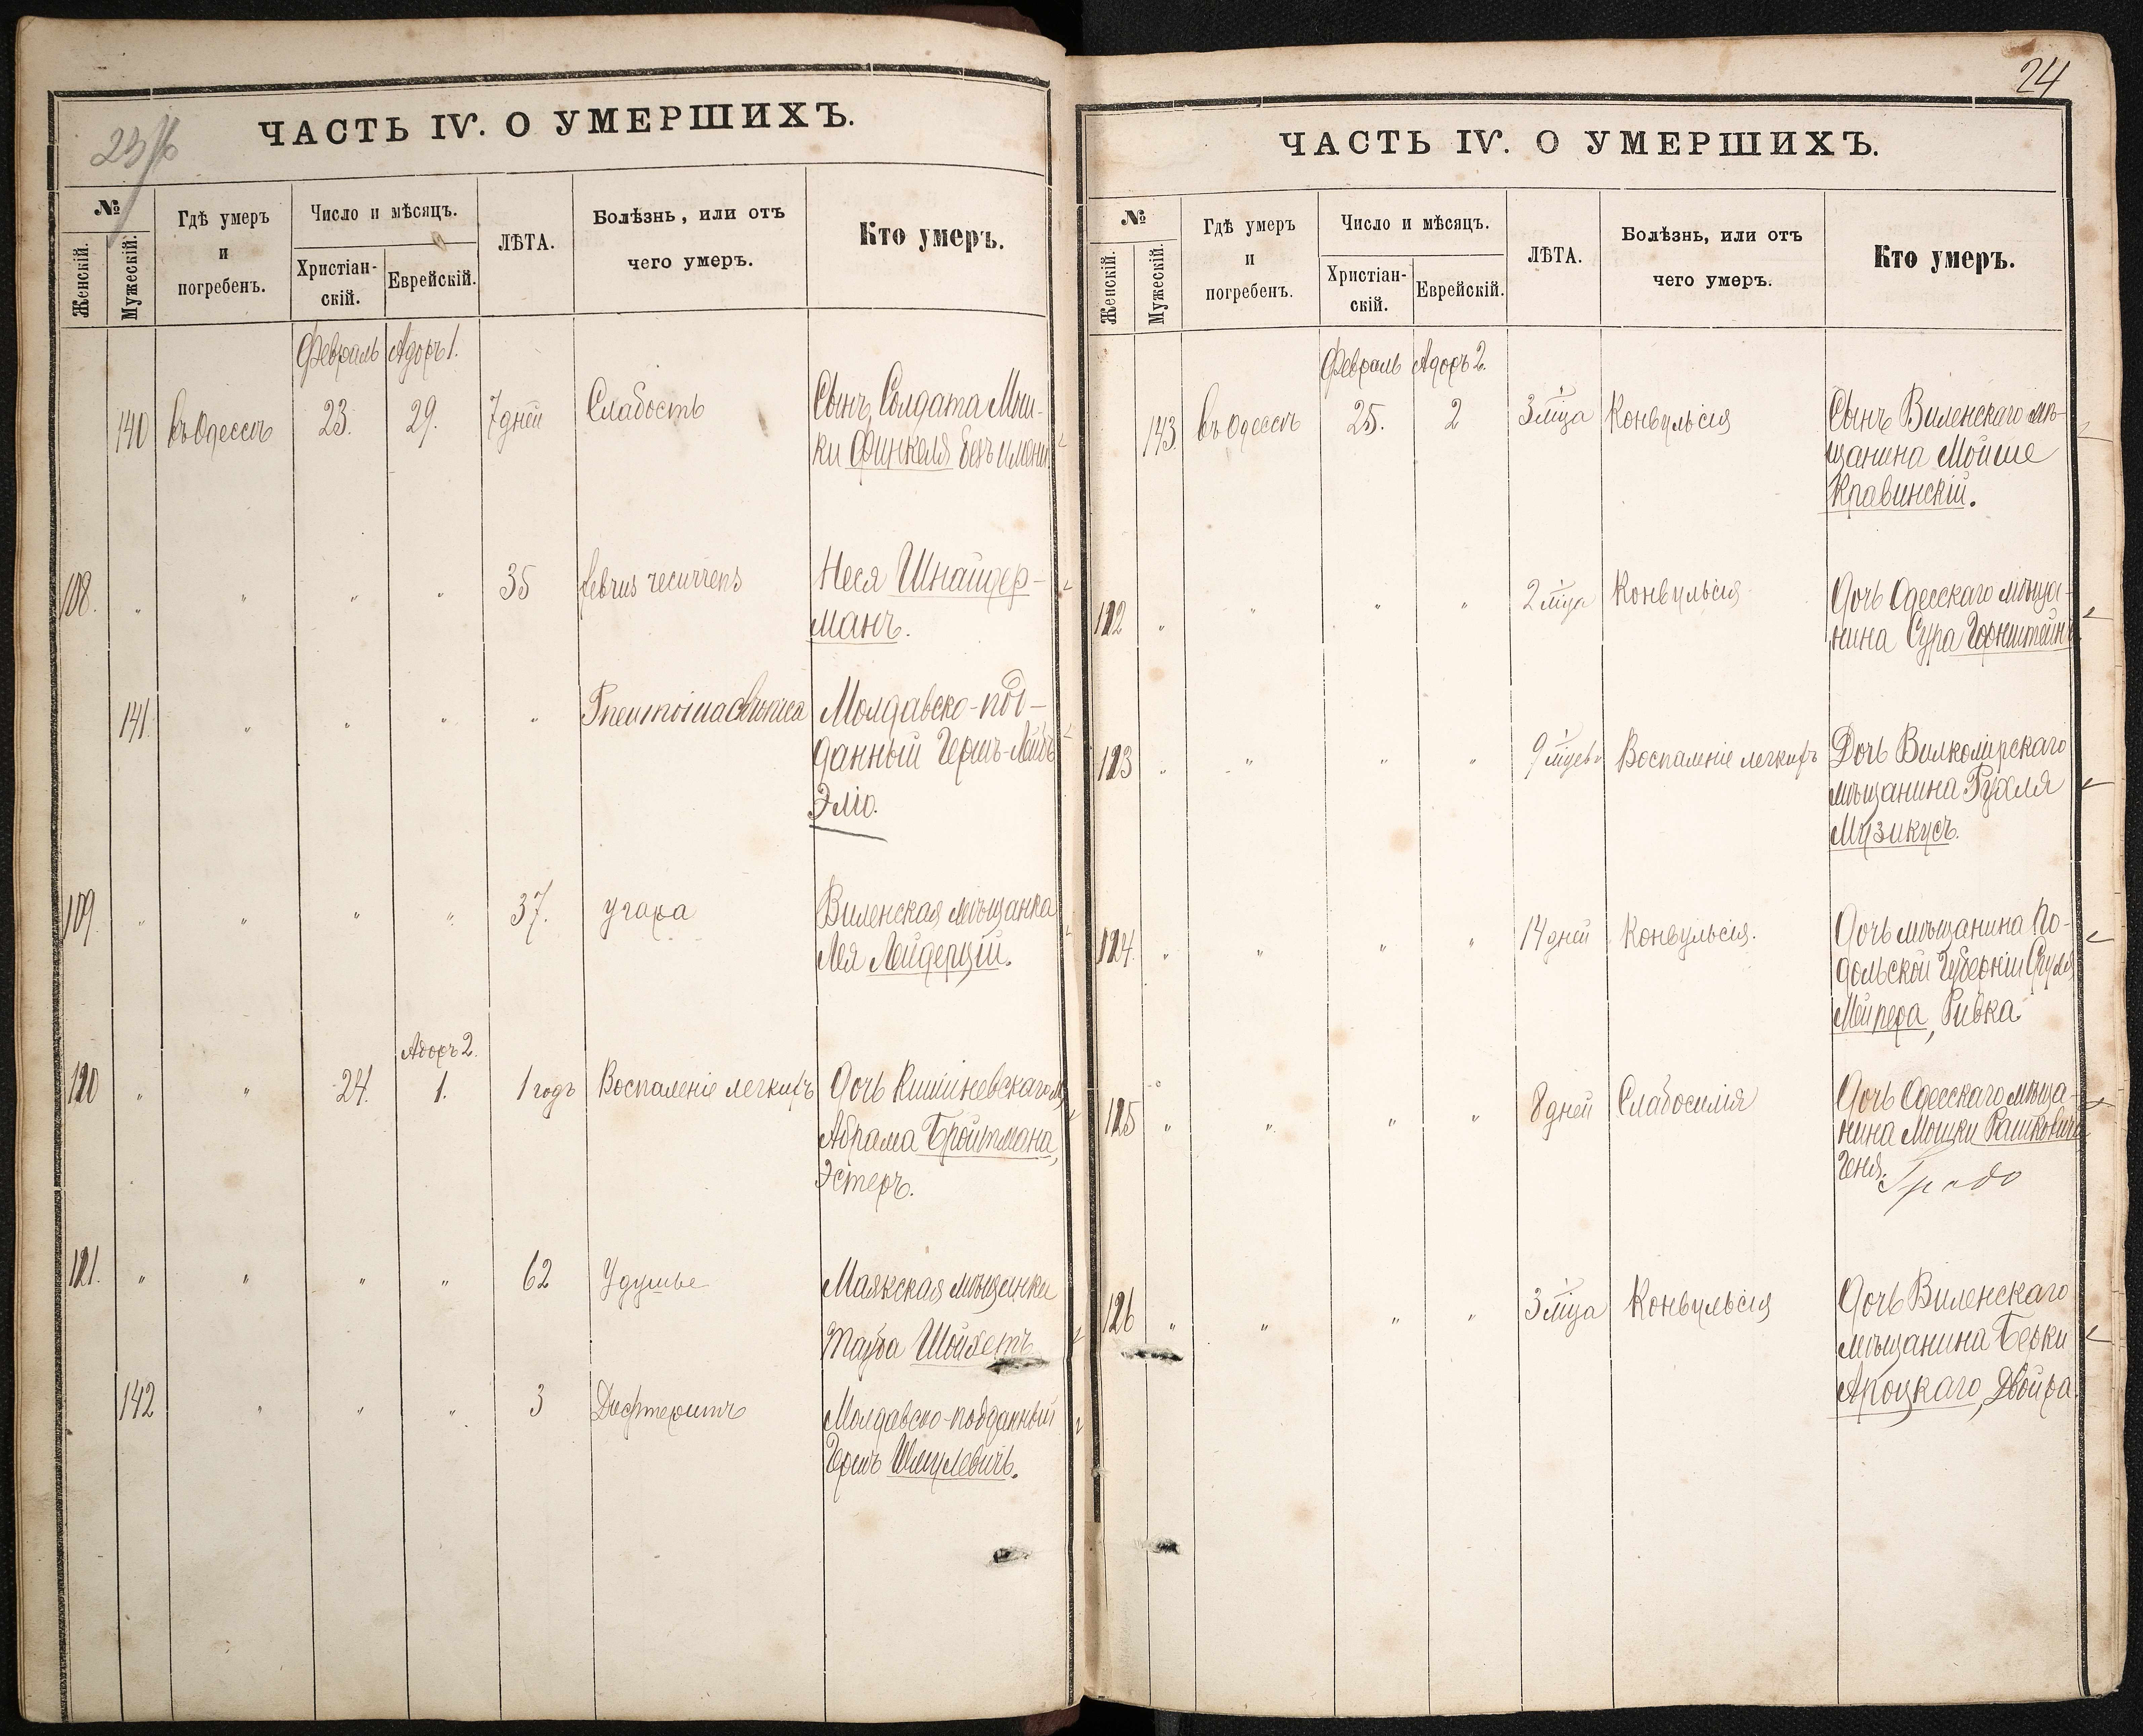 ЧАСТЬ IV. О УМЕРШИХЪ.
№
Женскій.
Мужескій.
Гдѣ умеръ
и
погребенъ.
Число и мѣсяцъ.
Христіан-
скій.
Еврейскій.
ЛѢТА.
Болѣзнь, или отъ
чего умеръ.
Кто умеръ.
Февраль Адоръ 1.
140 въ Одессѣ 23. 29. 7 дней Слабость Сынъ Солдата Мош-
ки Финкеля безъ имени
108. " " " " 35 februs recurrens Неся Шнайдер-
манъ.
141 " " " " Молдавско-под-
данный Гершъ-Лейбъ
Эліо.
109. " " " " 37. угара Виленская мѣщанка
Лея Лейдерцій.
Адоръ 2.
110 " " 24. 1. 1 годъ Воспаленіе легкихъ Дочь Кишиневскаго м.
Абрама Бройтмана,
Эстеръ.
111. " " " " 62 Удушье Маякская мѣщанка
Тауба Шойхетъ
142 " " " 3 Дифтеритъ Молдавско-подданный
Гершъ Шмулевичъ.
24
ЧАСТЬ IV. О УМЕРШИХЪ.
№
Женскій.
Мужескій.
Гдѣ умеръ
и
погребенъ.
Число и мѣсяцъ.
Христіан-
скій.
Еврейскій.
ЛѢТА.
Болѣзнь, или отъ
чего умеръ.
Кто умеръ.
Февраль Адоръ 2.
143. въ Одессѣ 25. 2 3 мѣца Конвульсія Сынъ Виленскаго мѣ-
щанина Мойше
Кравинскій.
112 " " " " 2 мѣца Конвульсія Дочь Одесскаго мѣща-
нина Сура Горнштейнъ
113 " " " " 9 мѣцевъ Воспаленіе легкихъ Дочь Вилкомірскаго
мѣщанина Рухля
Музикусъ.
114. " " " " 14 дней Конвульсія. Дочь мѣщанина По-
дольской Губерніи Сруля
Мейпера, Ривка
115 " " " " 8 дней Слабосилія Дочь Одесскаго мѣща-
нина Мошки Рашковича
Геня.
116 " " " " 3 мѣца Конвульсія Дочь Виленскаго
мѣщанина Берки
Ароцкаго, Двойра